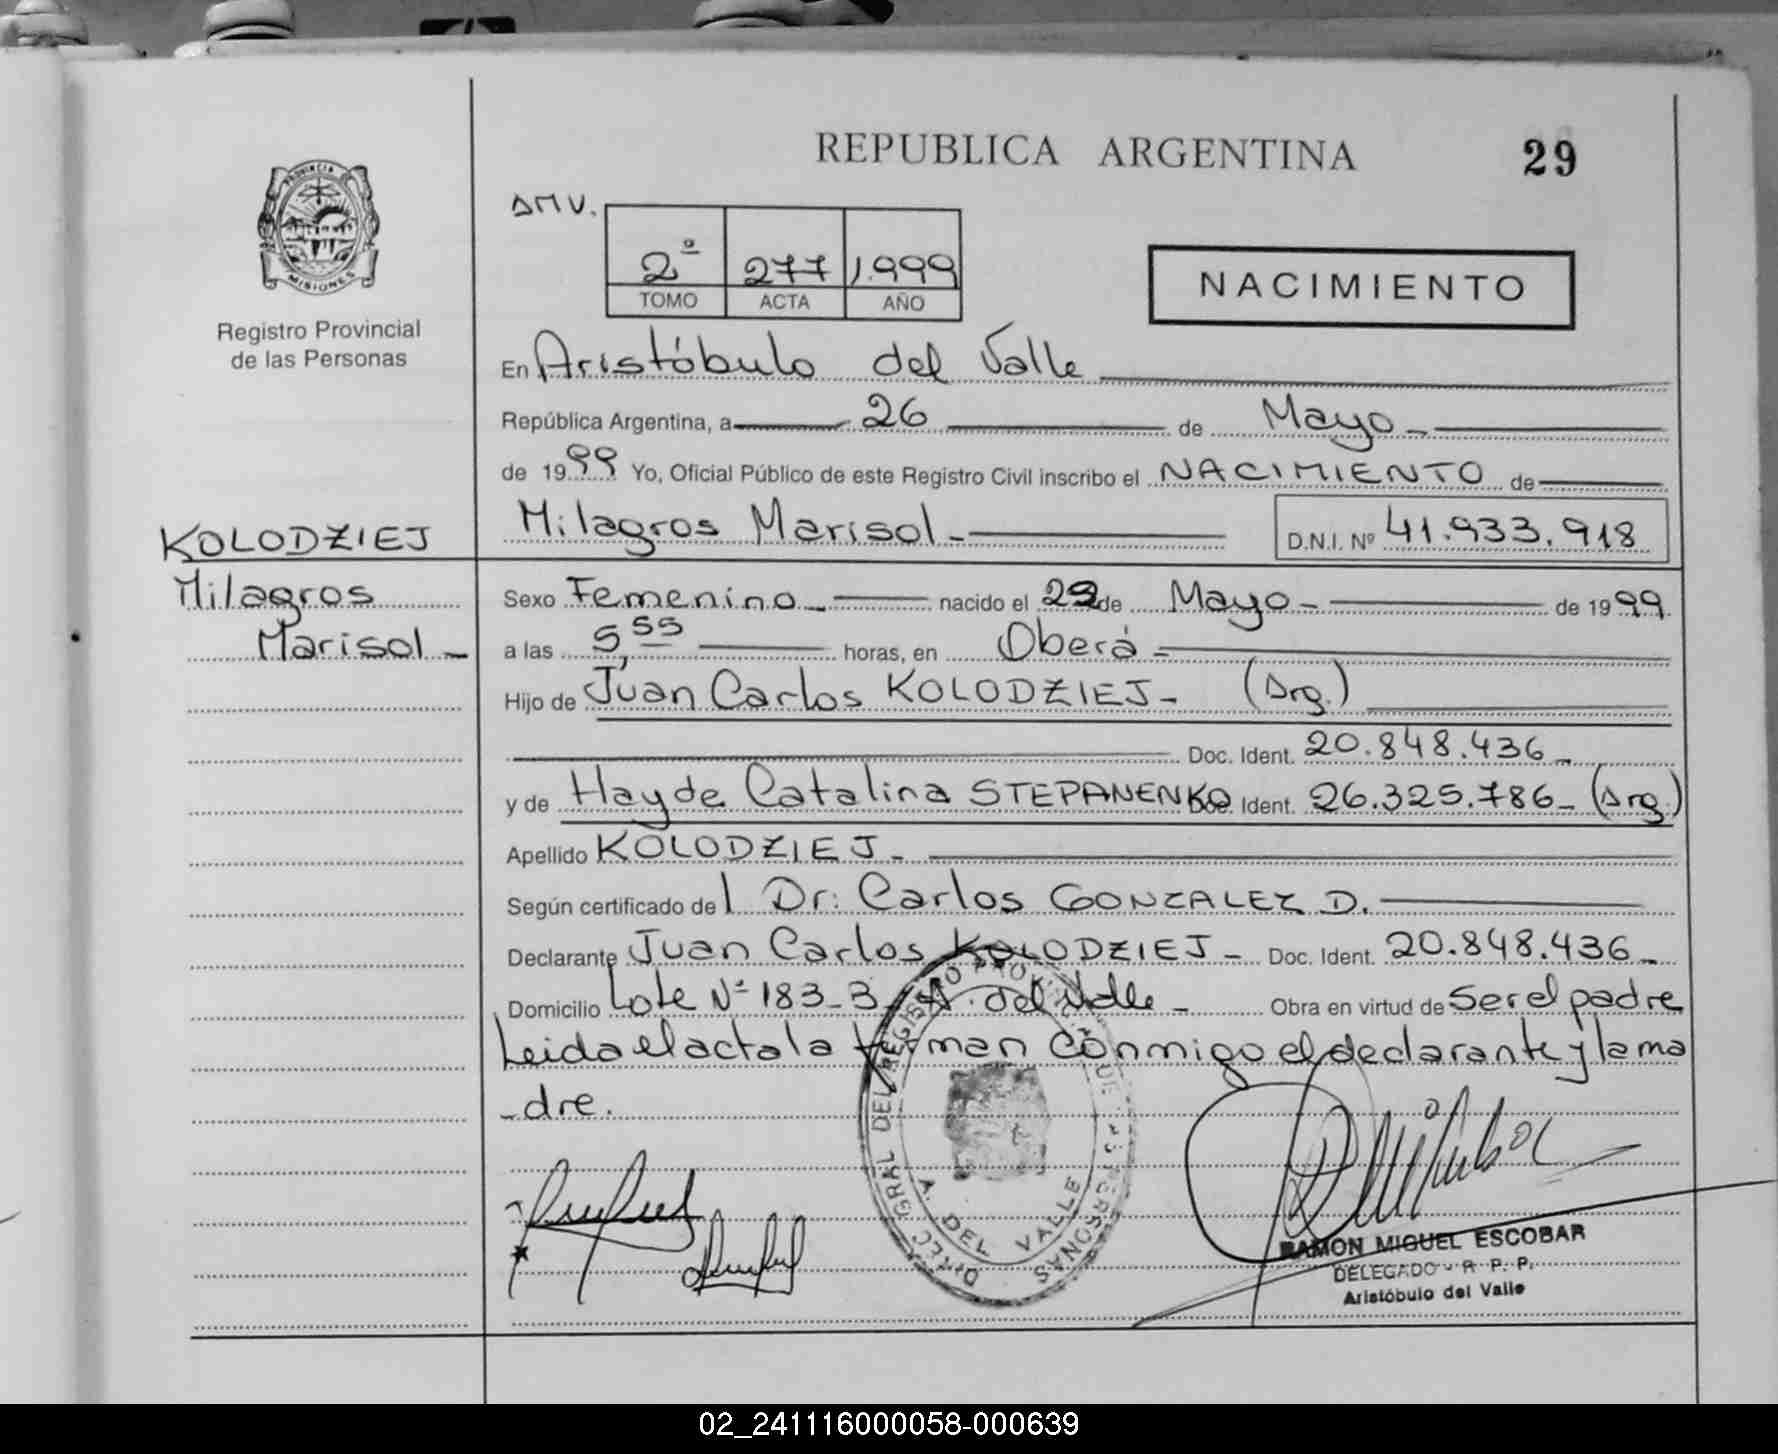 REPUBLICA ARGENTINA
29
PROVINCIA
MISIONES
Registro Provincial
de las Personas
2º 277 1.999
TOMO ACTA AÑO
NACIMIENTO
En Aristóbulo del Valle
República Argentina, a 26 de Mayo
de 1999 Yo, Oficial Público de este Registro Civil inscribo el NACIMIENTO de
KOLODZIEJ
Milagros Marisol
D.N.I. Nº 41.933.918
Milagros
Marisol
Sexo Femenino nacido el de Mayo de 1999
a las 5,55 horas, en Oberá
Hijo de Juan Carlos KOLODZIEJ (Arg.)
Doc. Ident. 20.848.436
y de Hayde Catalina STEPANENKO Doc. Ident. 26.325.786 (Arg.)
Apellido KOLODZIEJ
Según certificado del Dr: Carlos GONZALEZ D.
Declarante Juan Carlos KOLODZIEJ Doc. Ident. 20.848.436
Domicilio Lote Nº 183-B A. del Valle Obra en virtud de Ser el padre
Leida el acta la firman conmigo el declarante y la ma
-dre.
DIREC. GRAL DEL REGISTRO PROVINCIAL DE LAS PERSONAS
A. DEL VALLE
RAMON MIGUEL ESCOBAR
DELEGADO - R. P. P.
Aristóbulo del Valle
02_241116000058-000639